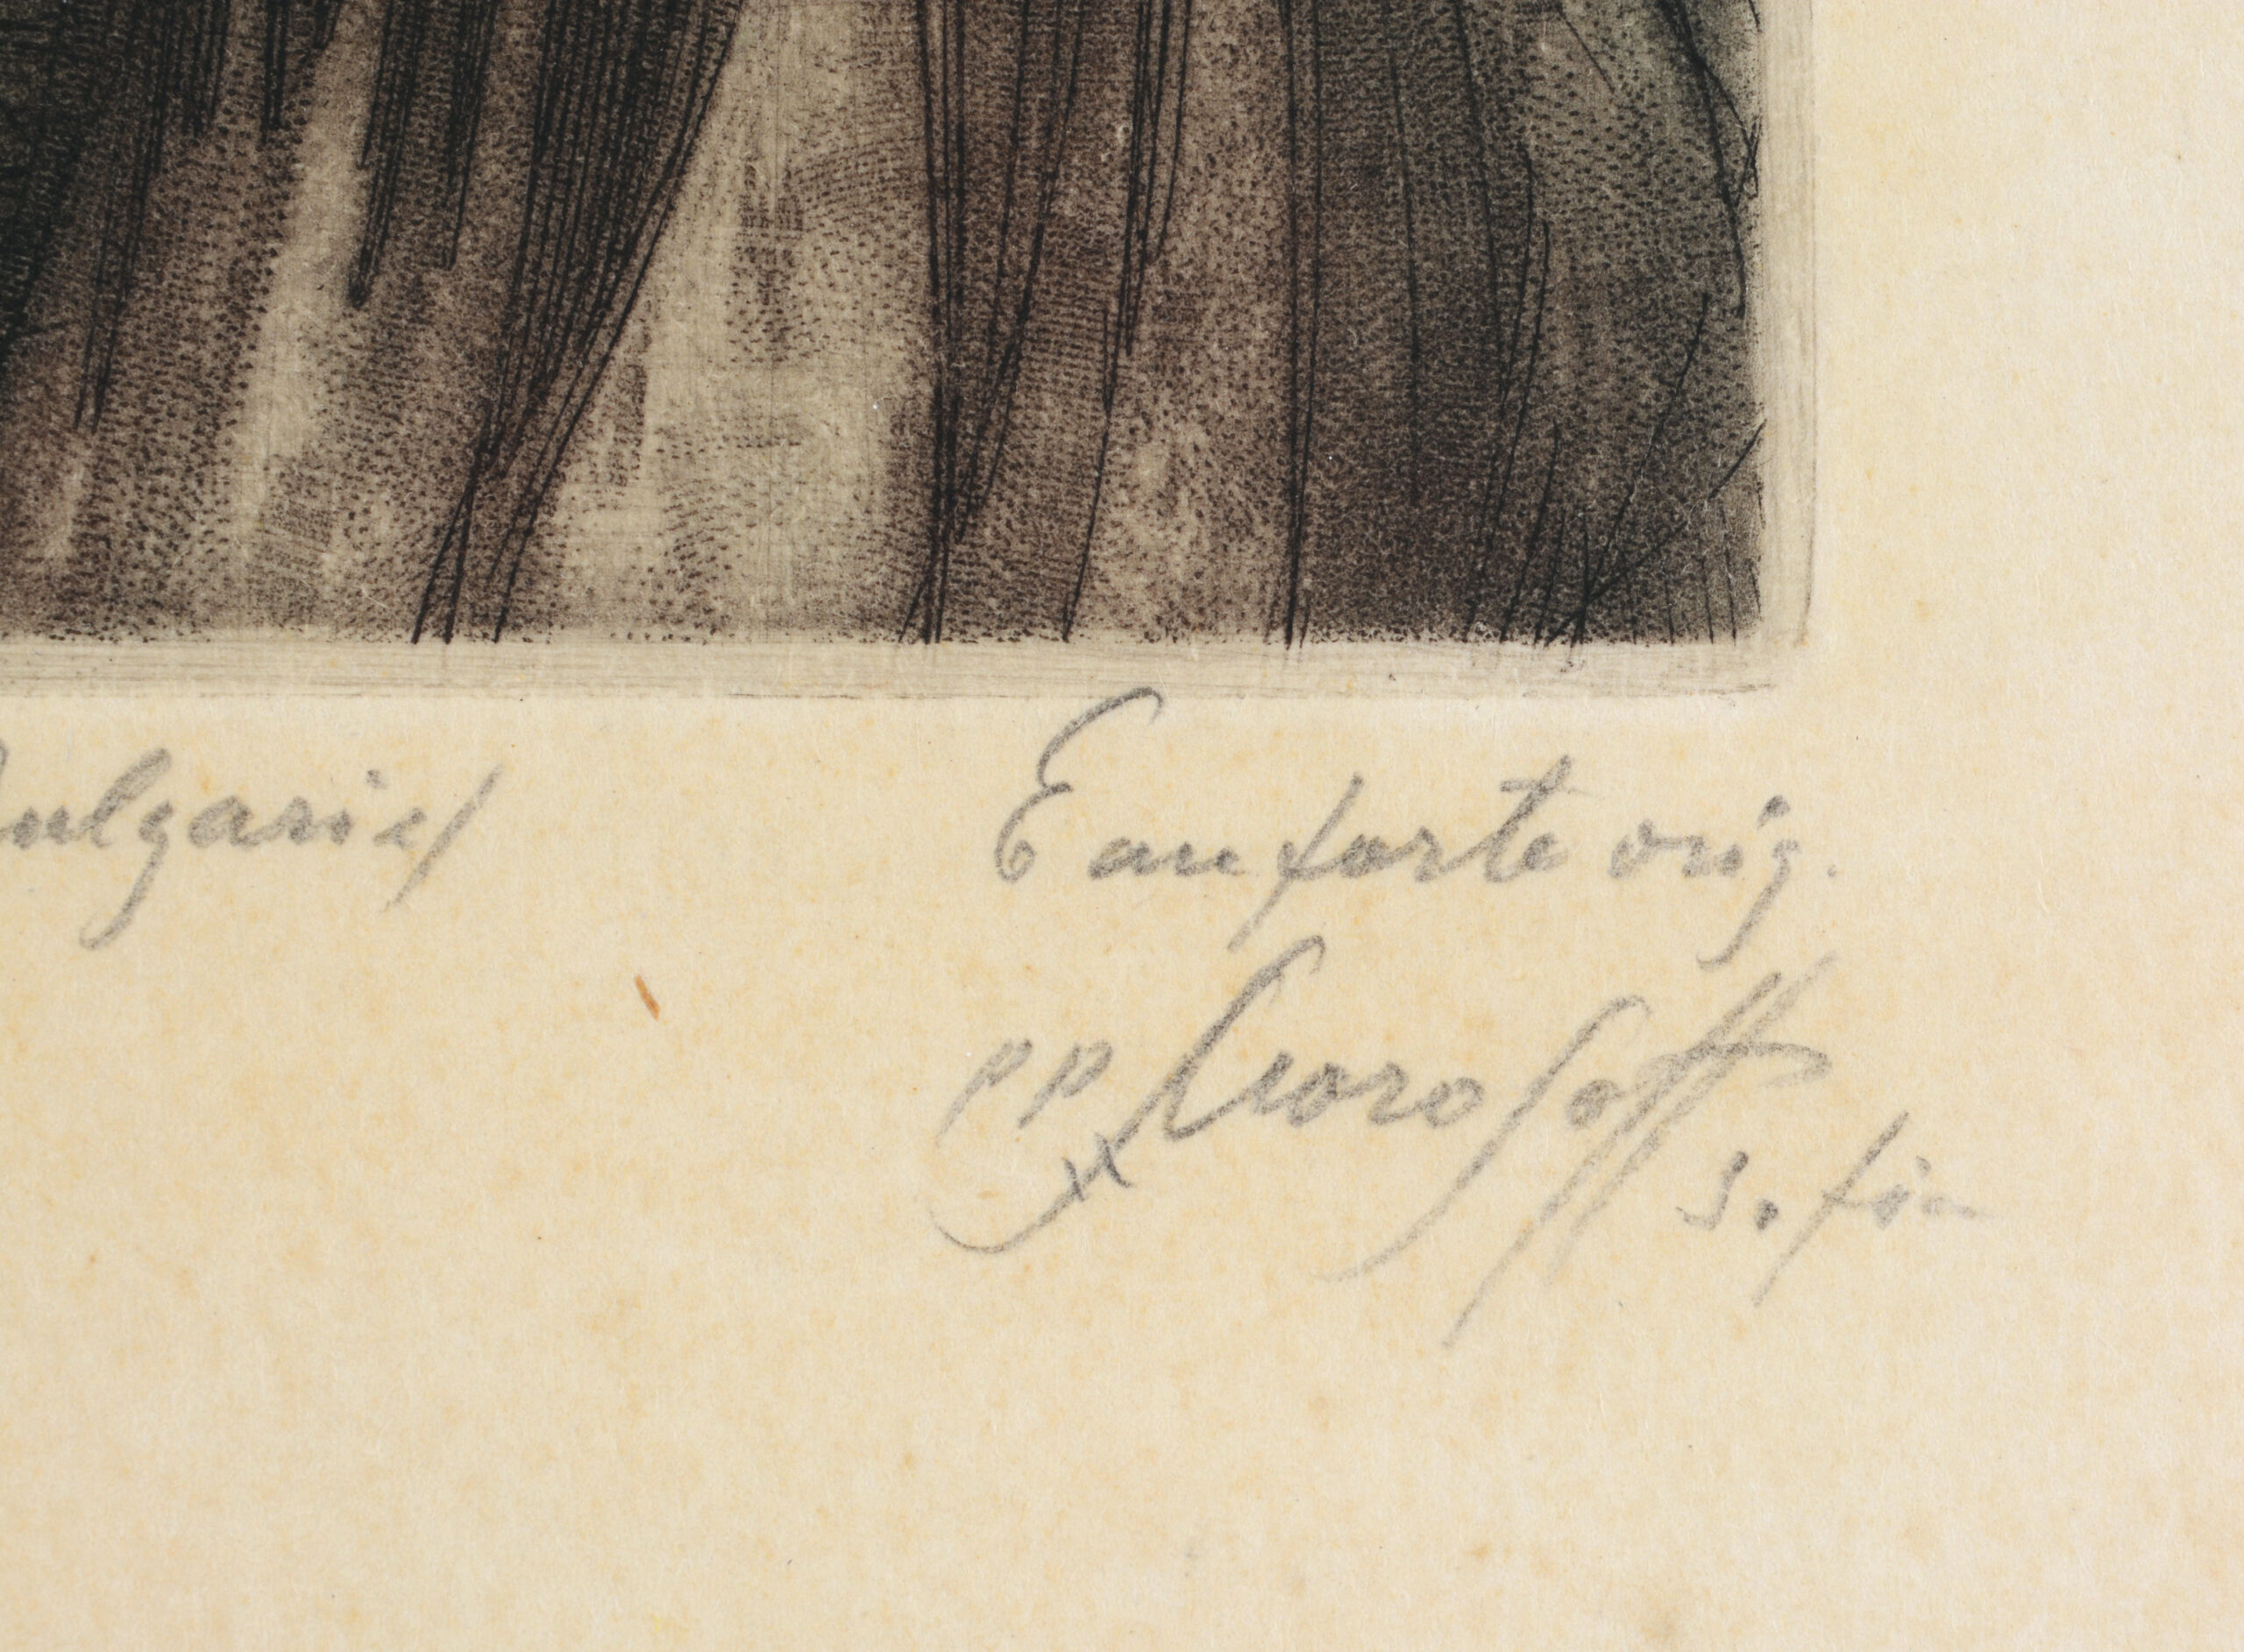 Bulgarie/ Eau forte orig.
PP Morosoff
Sofia